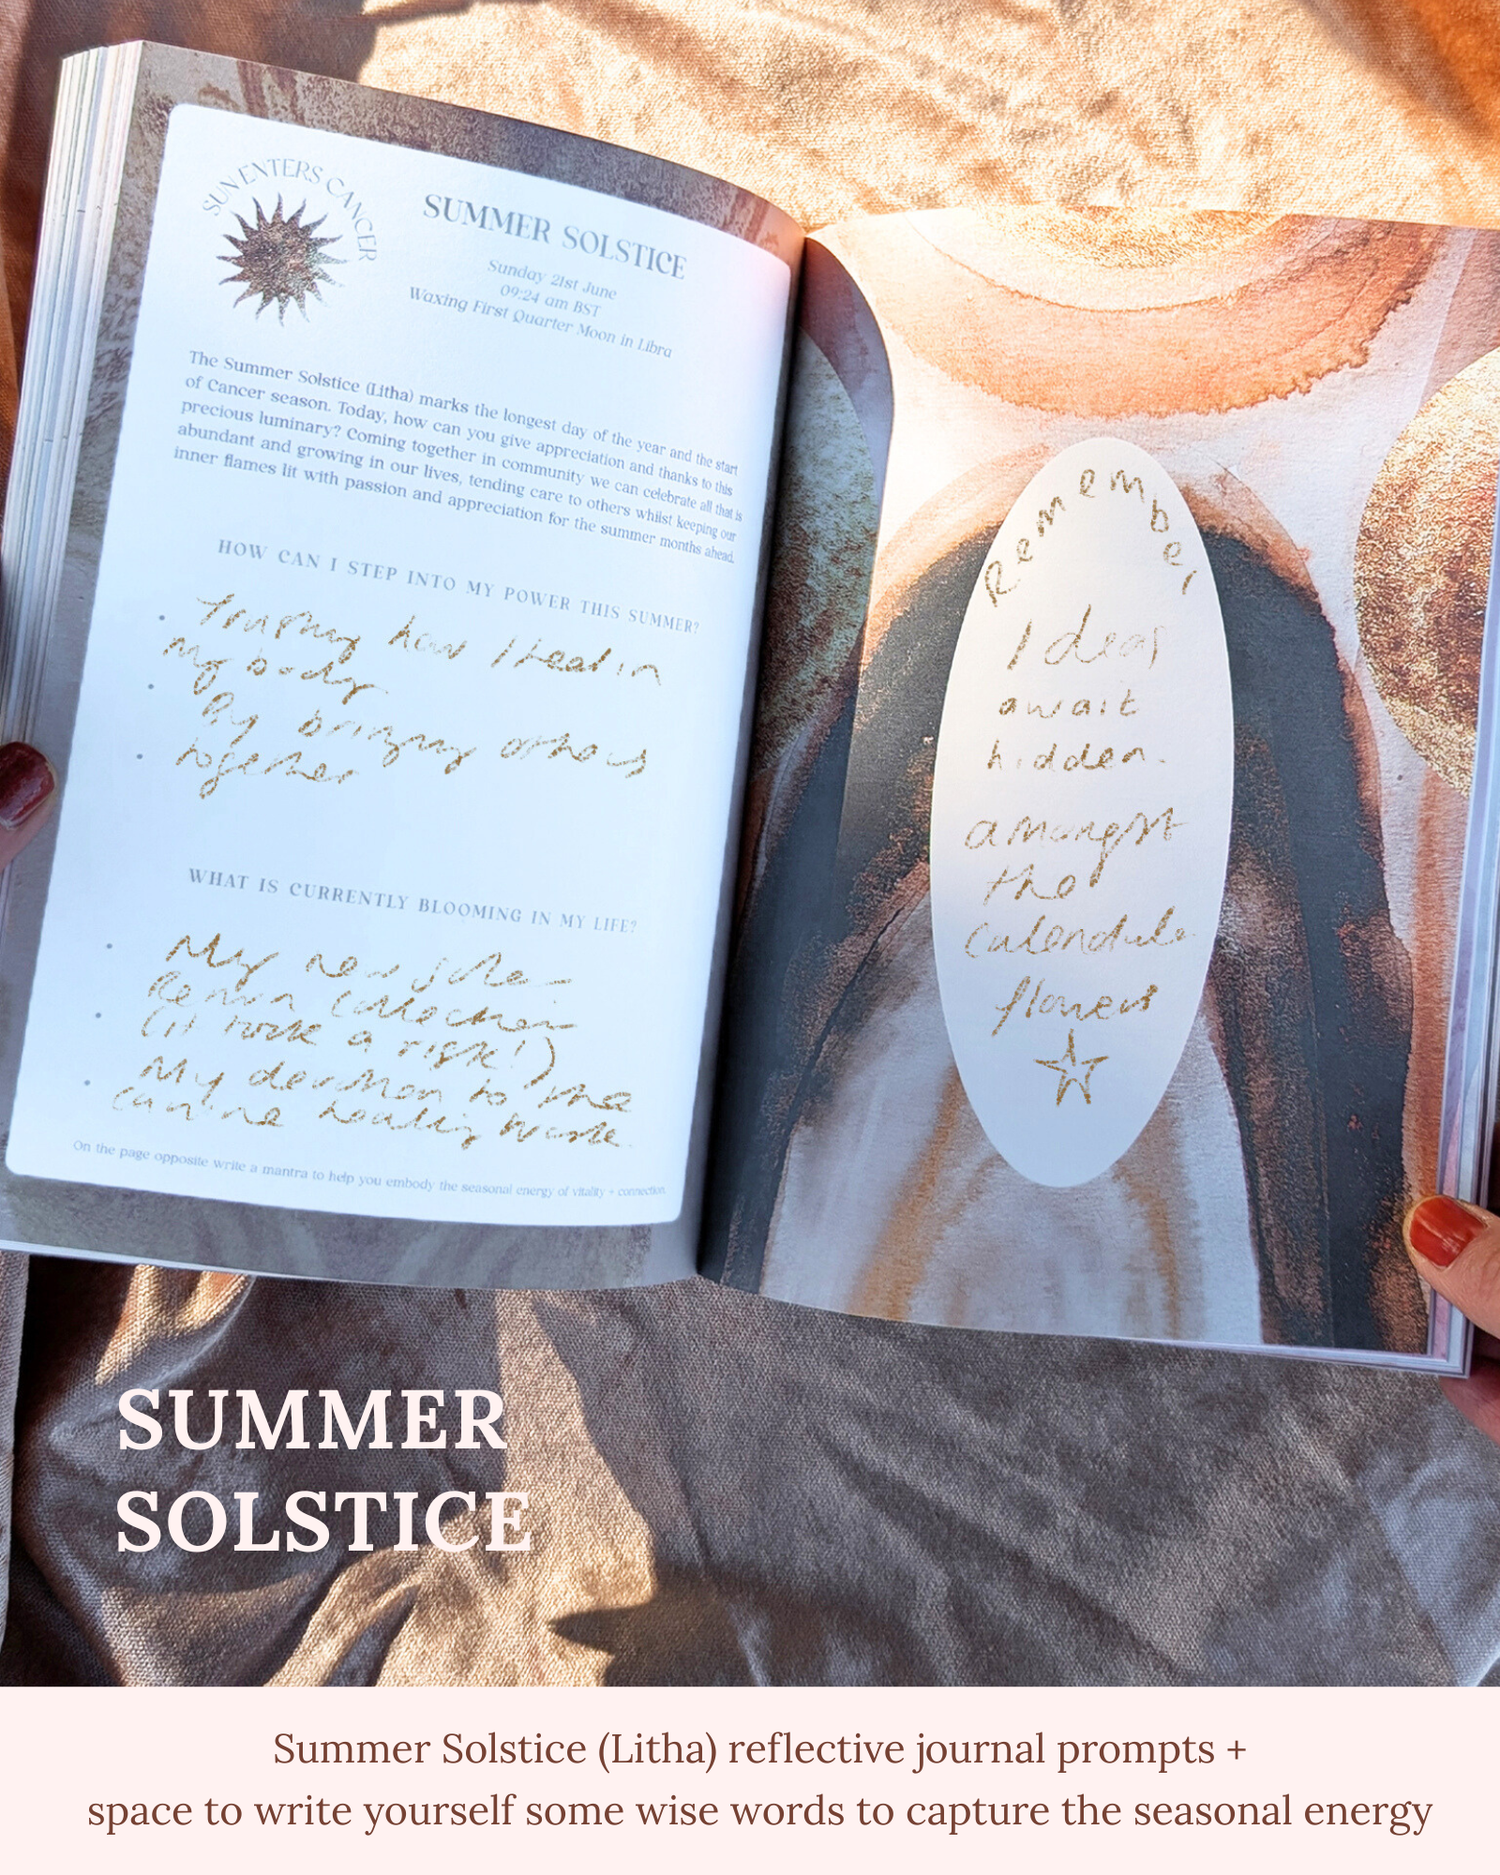 SUN ENTERS CANCER
SUMMER SOLSTICE
Sunday 21st June
09:24 am BST
Waxing First Quarter Moon in Libra
The Summer Solstice (Litha) marks the longest day of the year and the start
of Cancer season. Today, how can you give appreciation and thanks to this
precious luminary? Coming together in community we can celebrate all that is
abundant and growing in our lives, tending care to others whilst keeping our
inner flames lit with passion and appreciation for the summer months ahead.
HOW CAN I STEP INTO MY POWER THIS SUMMER?
Trusting how I in
my body
By bringing others
together
WHAT IS CURRENTLY BLOOMING IN MY LIFE?
My new
collection
(I took a risk!)
My devotion to the
healing work.
On the page opposite write a mantra to help you embody the seasonal energy of vitality + connection.
Remember
Ideas
await
hidden
amongst
the
calendula
flowers
SUMMER
SOLSTICE
Summer Solstice (Litha) reflective journal prompts +
space to write yourself some wise words to capture the seasonal energy